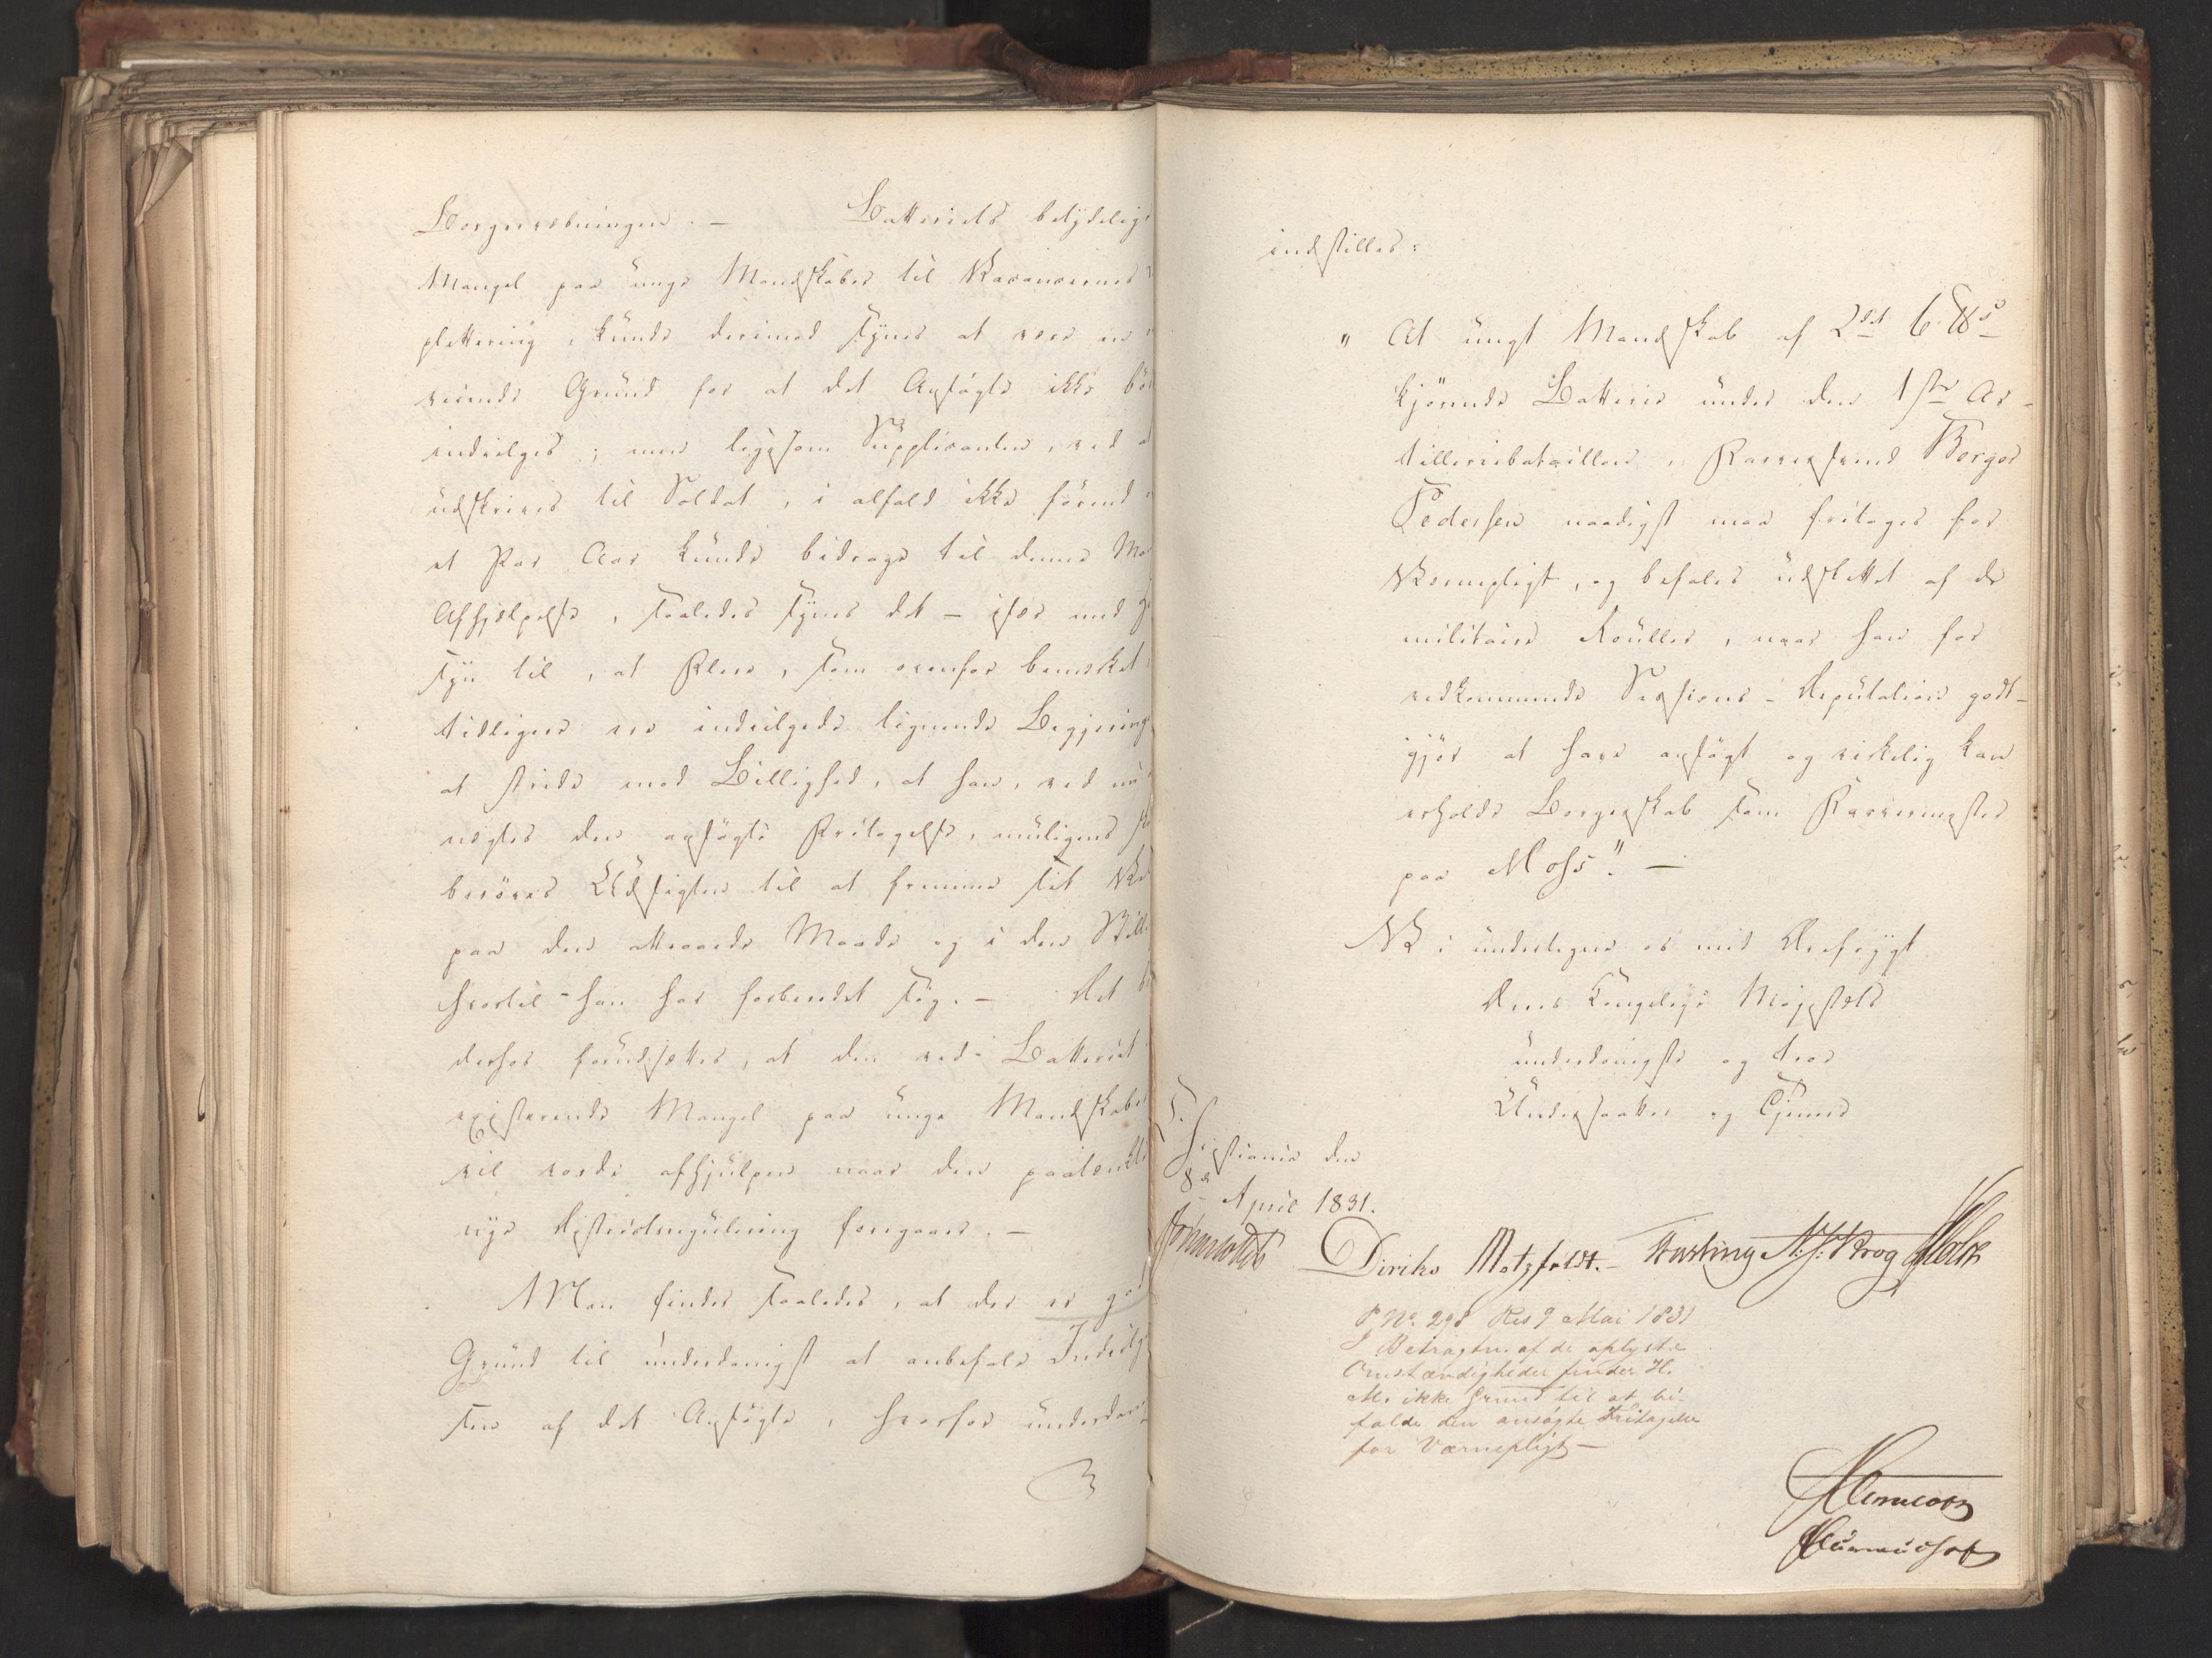 Borgervæbningen. — Batteriets betydelige
Mangel paa unge Mandskaber til Vacancernes
plettering, kunde derimod synes at være en
veiende Grund for at det Ansøgte ikke bør
indvilges; men ligesom Supplicanten, ved at
udskrives til Soldat, i alfald ikke førend
et Par Aar kunde bidrage til denne Man
Afhjelpelse, saaledes synes det — især med
syn til, at Flere, som ovenfor bemerket
tidligere ere indvilgede lignende Begjering
at stride mod Billighed, at han, ved nu
nægtes den ansøgte Fritagelse, muligens
berøves Udsigten til at fremme sit Vel
paa den attraaede Maade og i den Still
hvortil han har forberedet sig. — Det
derhos forudsættes, at den ved Batteriet
existerende Mangel paa unge Mandskaber
vil vorde afhjulpen naar den paatænkte
nye Districtsregulering foregaaer. —
Man finder saaledes, at der er god
Grund til underdanigst at anbefale Indvilg
sen af det Ansøgte, hvorfor underdan
indstilles:
" At ungt Mandskab af 2det 6 ℔s
kjørende Batterie under den 1ste Ar-
tilleriebataillon, Farversvend Borger
Pedersen naadigst maa fritages for
Værnepligt, og befales udslettet af de
militaire Rouller, naar han for
vedkommende Sessions-Deputation godt-
gjør at have ansøgt og virkelig kan
erholde Borgerskab som Farvermester
paa Moss". —
Vi undertegne os med Dybeste
Deres Kongelige Majestæts
underdanigste og troe
Undersaatter og Tjenere
Christiania den
8de April 1831.
Diriks Motzfeldt. N. J. Krog
P. No. 298 Res 9 Mai 1831
I Betragtn. af de oplyste
Omstændigheder finder H.
M. ikke Grund til at bi-
falde den ansøgte Fritagelse
for Værnepligt —